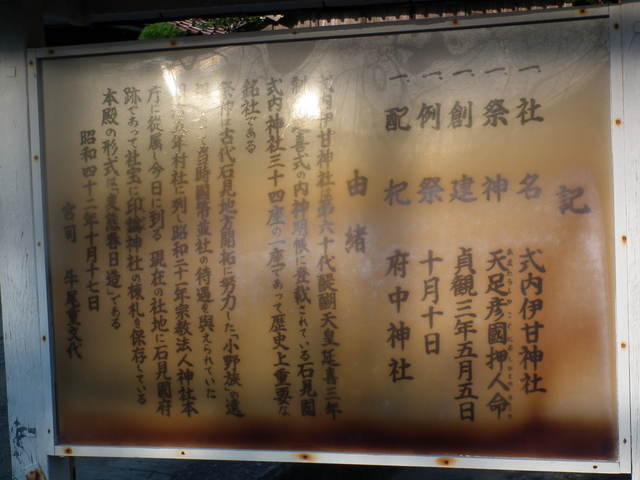 記
一、社名 式内伊甘神社
一、祭神 天足彦國押人命
一、創建 貞観三年五月五日
一、例祭 十月十日
一、配祀 府中神社
由緒
式内伊甘神社は第六十代醍醐天皇延喜三年
制定延喜式の内神明帳に登載されている石見國
式内神社三十四座の一座であって歴史上重要な
銘社である
祭神は古代石見地方開拓に努力した小野族の遠
祖であって当時國幣並社の待遇を与えられていた
五年村社に列し昭和二十一年宗教法人神社本
庁に従属し今日に到る 現在の社地に石見國府
跡であって社宝に印鑰神社の棟札を保存している
本殿の形式は変態春日造である
昭和四十二年十月十七日
宮司 牛尾重文代